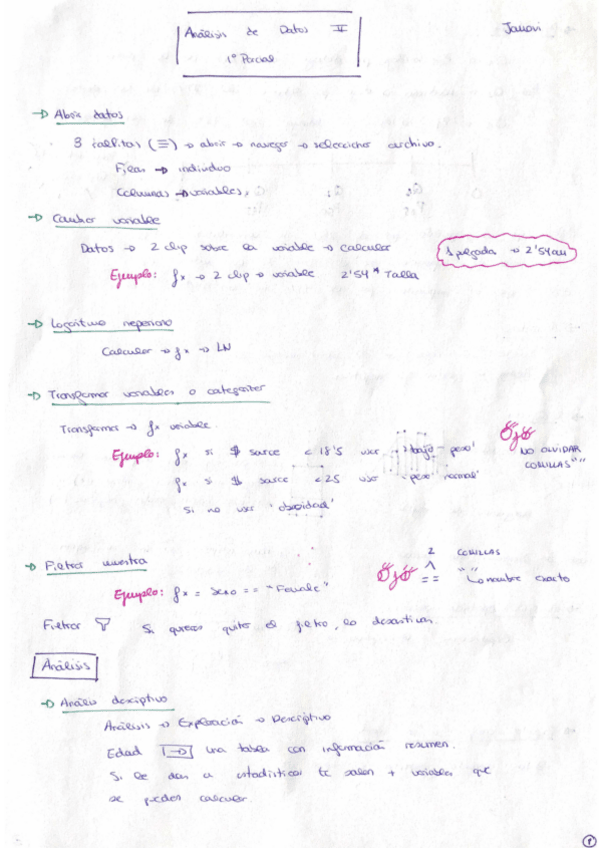 Análisis de Datos II
Jamovi
1º Parcial
→ Abrir datos
3 rallitas (≡) → abrir → navegar → seleccionar archivo.
Filas → individuo
Columnas → variables,
→ Cambiar variable
Datos → 2 clip sobre la variable → calcular
1 pulgada → 2'54cm
Ejemplo: fx → 2 clip → variable 2'54 * Talla
→ Logaritmo neperiano
Calcular → fx → LN
→ Transformar variables o categorizar
Transformar → fx variable.
Ejemplo: fx si $ sarce < 18'5 usar 'bajo-peso'
Ojo
NO OLVIDAR
COMILLAS " "
fx si $ sarce < 25 usar 'peso normal'
si no usar 'obesidad'
→ Filtrar muestra
2 COMILLAS
Ejemplo: fx = sexo == "Female"
Ojo == " " nombre exacto
Filtrar Si quieres quitar el filtro, lo desactivan.
Análisis
→ Análisis descriptivo
Análisis → Exploración → Descriptivo
Edad → una tabla con información resumen.
Si le das a estadísticas te salen + variables que
se pueden calcular.
1